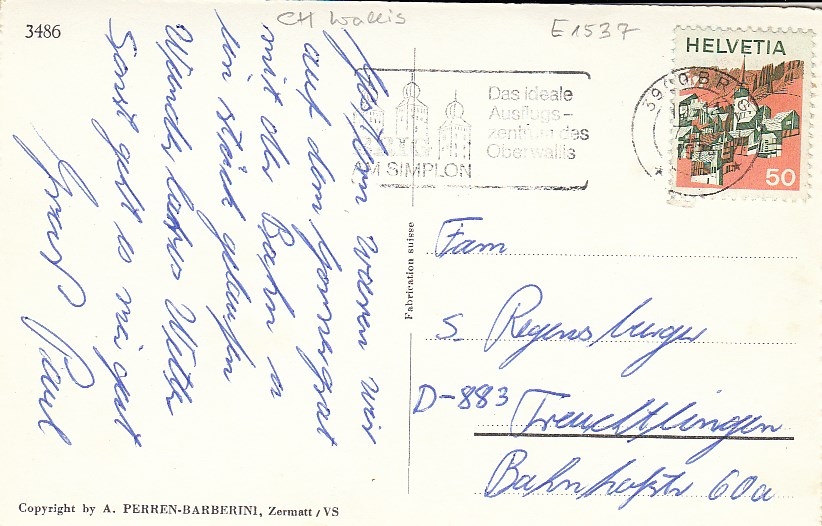 3486
CH Wallis
E1537
HELVETIA
50
3900 BRIG
Das ideale
Ausflugs-
zentrum des
Oberwallis
AM SIMPLON
Gestern waren wir
auf dem Gornergrat
mit der Bahn u
ein Stück gelaufen
Wunderbares Wetter
Sonst geht es mir gut
Gruß Paul
Fabrication suisse
Fam
S. Regensburger
D-883 Treuchtlingen
Bahnhofstr 60a
Copyright by A. PERREN-BARBERINI, Zermatt/VS